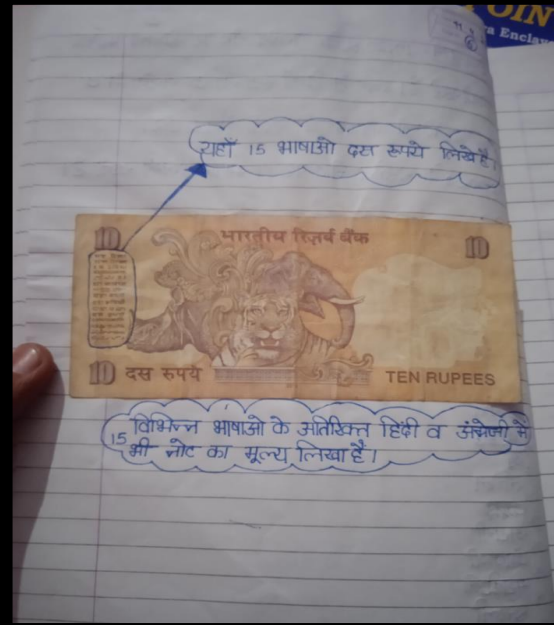 OIN
a Enclav
यहाँ 15 भाषाओ दस रूपये लिखे है।
10 भारतीय रिज़र्व बैंक 10
10 दस रुपये TEN RUPEES
15 विभिन्न भाषाओ के अतिरिक्त हिंदी व अंग्रेजी में
भी नोट का मूल्य लिखा है।